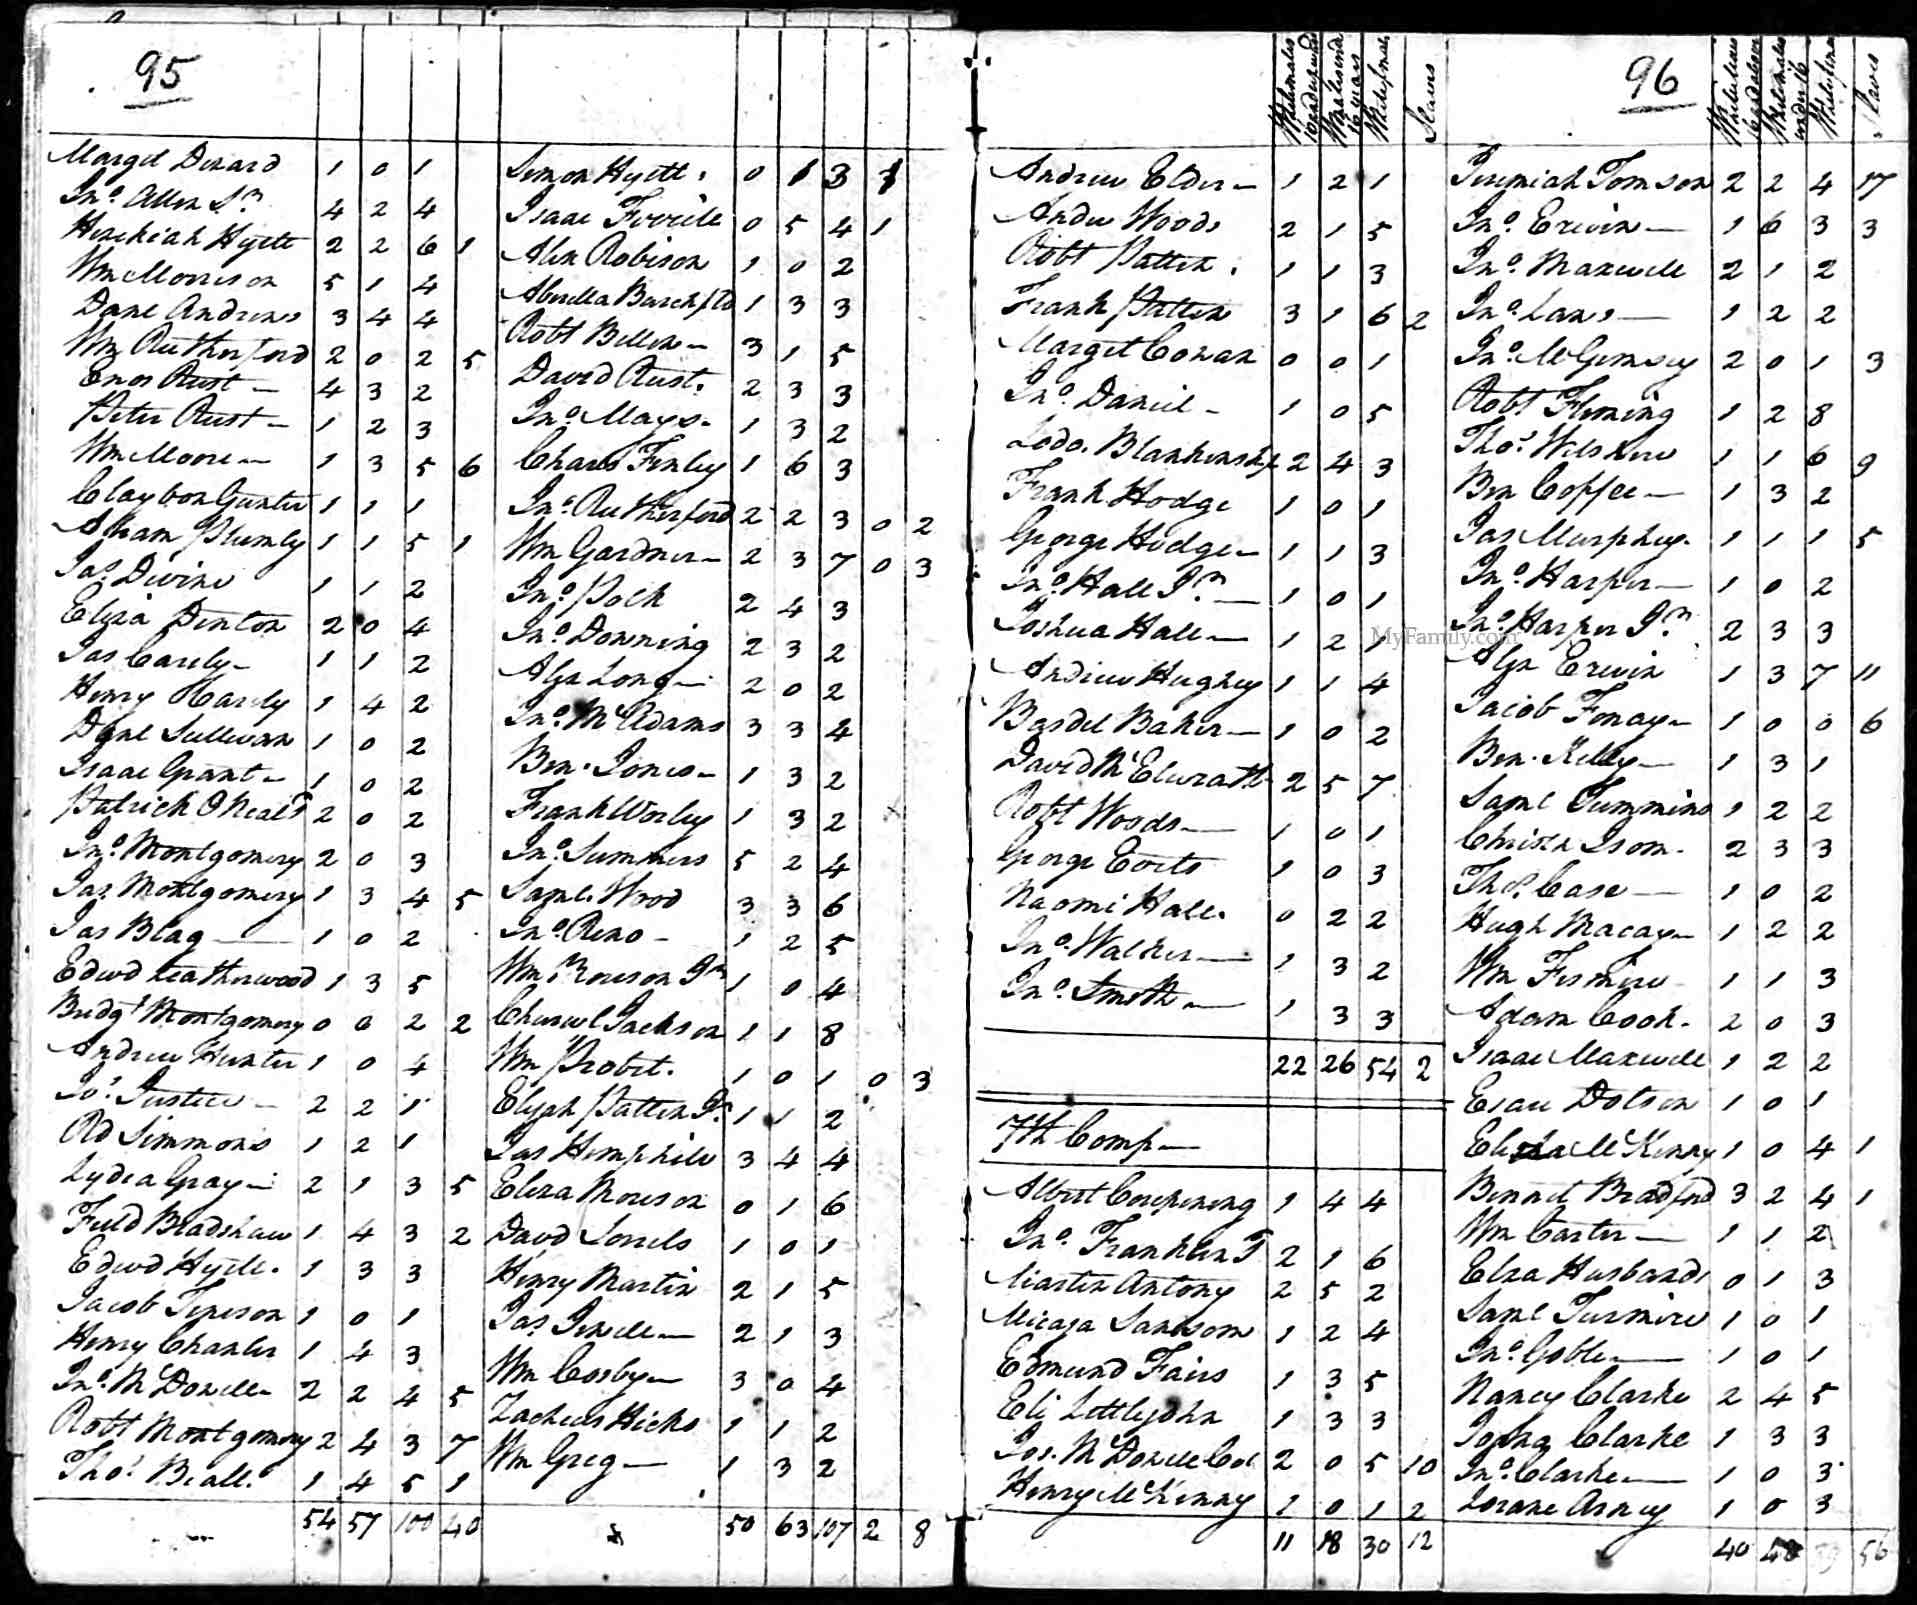 95
Margit Denard 1 0 1
Jno. Allen Sr. 4 2 4
Hezekiah Hyett 2 2 6 1
Wm Morrison 5 1 4
Danl Andrews 3 4 4
Wm Rutherford 2 0 2 5
Enos Rust 4 3 2
Peter Rust 1 2 3
Wm Moore 1 3 5 6
Claybon Gunter 1 1 1
Abram Plumly 1 1 5 1
Jas Devine 1 1 2
Eliza Denton 2 0 4
Jas 1 1 2
Henry Hardy 1 4 2
Danl Sullivan 1 0 2
Isaac Grant 1 0 2
Patrick ONeal 2 0 2
Jno. Montgomery 2 0 3
Jas. Montgomery 1 3 4 5
Jas Blag 1 0 2
Edwd Leatherwood 1 3 5
Bridgt Montgomery 0 0 2 2
Andrew Hunter 1 0 4
Jos. Justice 2 2 1
Rd Simmons 1 2 1
Lydea Gray 2 1 3 5
Field Bradshaw 1 4 3 2
Edwd Hyett 1 3 3
Jacob 1 0 1
Henry Chanler 1 4 3
Jno. McDowell 2 2 4 5
Robt Montgomery 2 4 3 7
Thos. Beall 1 4 5 1
54 57 100 40
Simon Hyett 0 1 3 1
Isaac 0 5 4 1
Alex Robison 1 0 2
1 3 3
Robt 3 1 5
David Rust 2 3 3
Jno. Mays 1 3 2
Charls Finley 1 6 3
Jno. Rutherford 2 2 3 0 2
Wm Gardner 2 3 7 0 3
Jno. Polk 2 4 3
Jno. Downing 2 3 2
Alex Long 2 0 2
Jno. McAdams 3 3 4
Ben. Jones 1 3 2
Frank Worley 1 3 2
Jno. Summers 5 2 4
Saml. Wood 3 3 6
Jno. Reno 1 2 5
Wm Moreson Jr. 1 0 4
Churwel Jackson 1 1 8
Wm Probet. 1 0 1 0 3
Elijah Patten Jr. 1 1 2
Jas Hemphill 3 4 4
Eliza Moreson 0 1 6
Davd Sorrels 1 0 1
Henry Martin 2 1 5
Jas. Jewell 2 1 3
Wm Cosby 3 0 4
Zacheus Hicks 1 1 2
Wm Greg 1 3 2
50 63 107 2 8
Slaves
Andrew Elder 1 2 1
Andw Woods 2 1 5
Robt Patten 1 1 3
Frank Patten 3 1 6 2
Margit Cowan 0 0 1
Jno. Daniel 1 0 5
Lodo. Blankenship 2 4 3
Frank Hodge 1 0 1
George Hodge 1 1 3
Jno. Hall Jr. 1 0 1
Joshua Hall 1 2 1
Andrew Hughey 1 1 4
Bardel Baker 1 0 2
David McElwrath 2 5 7
Robt Woods 1 0 1
George Evets 1 0 3
Naomi Hall 0 2 2
Jno. Walker 1 3 2
Jno. Smith 1 3 3
22 26 54 2
7th Comp
Albert Corpening 1 4 4
Jno. Franklin T 2 1 6
Martin Antony 2 5 2
Micaga Sansom 1 2 4
Edmund Fairs 1 3 5
Eli Littlejohn 1 3 3
Jos. McDowell Col 2 0 5 10
Henry McKinny 1 0 1 2
11 18 30 12
96
Slaves
Jeremiah Tomson 2 2 4 17
Jno. Erwin 1 6 3 3
Jno. Maxwell 2 1 2
Jno. Lane 1 2 2
Jno. McGimsey 2 0 1 3
Robt Fleming 1 2 8
Thos. Wilshire 1 1 6 9
Ben Coffee 1 3 2
Jas Murphey 1 1 1 5
Jno. Harper 1 0 2
Jno. Harper Jr. 2 3 3
Alex Erwin 1 3 7 11
Jacob Fonay 1 0 0 6
Ben. Kelly 1 3 1
Saml Tummins 1 2 2
Christn Isom 2 3 3
Thos. Case 1 0 2
Hugh Macay 1 2 2
Wm 1 1 3
Adam Cook 2 0 3
Isaac Maxwell 1 2 2
Esau Dotson 1 0 1
McKinny 1 0 4 1
Bennet Bradford 3 2 4 1
Wm Carter 1 1 2
Elza Husbands 0 1 3
Saml Turmire 1 0 1
Jno. Goble 1 0 1
Nancy Clarke 2 4 5
Clarke 1 3 3
Jno. Clarke 1 0 3
Arney 1 0 3
40 48 56
MyFamily.com